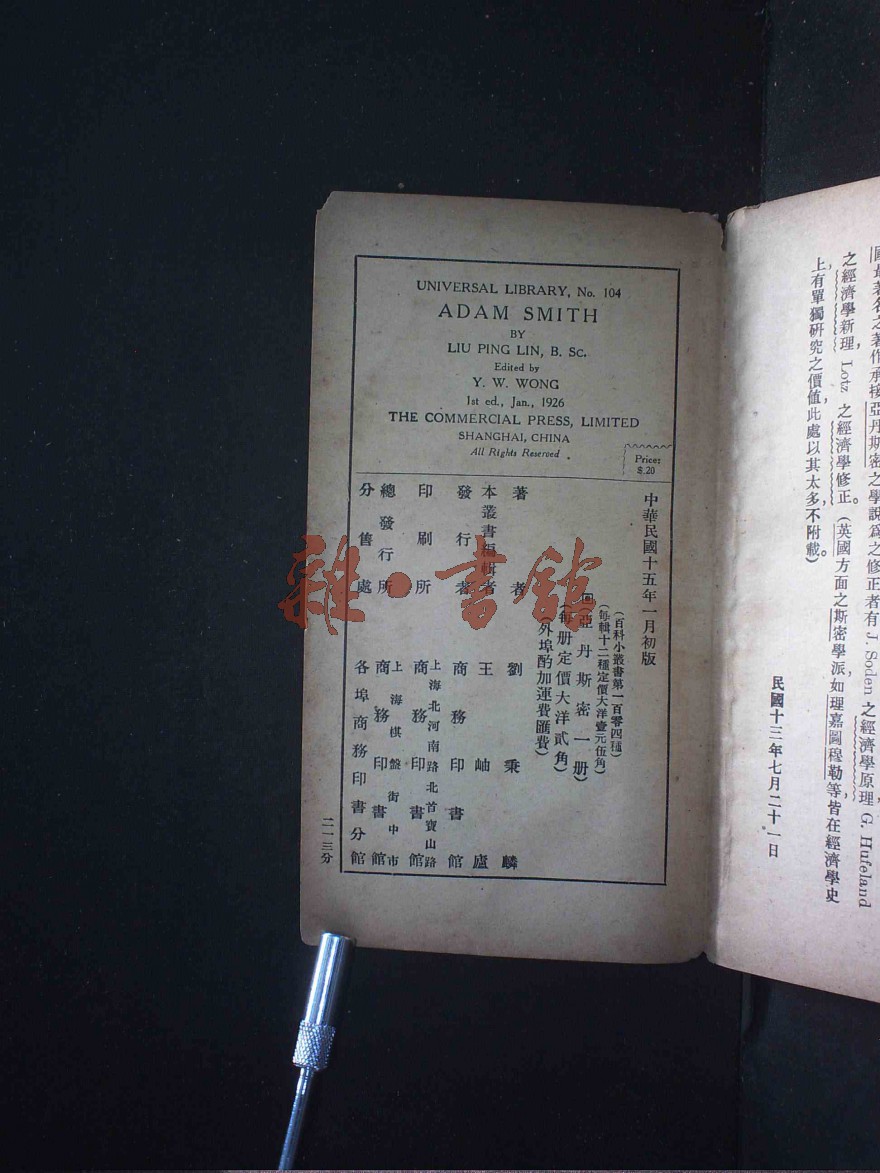 國最著名之著作承接亞丹斯密之學說爲之修正者有 J. Soden 之經濟學原理 G. Hufeland
之經濟學新理, Lotz 之經濟學修正。(英國方面之斯密學派如理嘉圖穆勒等皆在經濟學史
上有單獨研究之價值此處以其太多不附載)。
民國十三年七月二十一日
UNIVERSAL LIBRARY, No. 104
ADAM SMITH
BY
LIU PING LIN, B. SC.
Edited by
Y. W. WONG
1st ed., Jan., 1926
THE COMMERCIAL PRESS, LIMITED
SHANGHAI, CHINA
All Rights Reserved
Price:
$.20
中華民國十五年一月初版
(百科小叢書第一百零四種)
(每輯十二種定價大洋壹元伍角)
亞丹斯密一册)
(每册定價大洋貳角)
(外埠酌加運費匯費)
著者 劉秉麟
本叢書編輯者 王岫廬
發行者 商務印書館
印刷所 上海北河南路北首寶山路
商務印書館
總發行所 上海棋盤街中市
商務印書館
分售處 各埠商務印書分館
二一三分
雜·書館